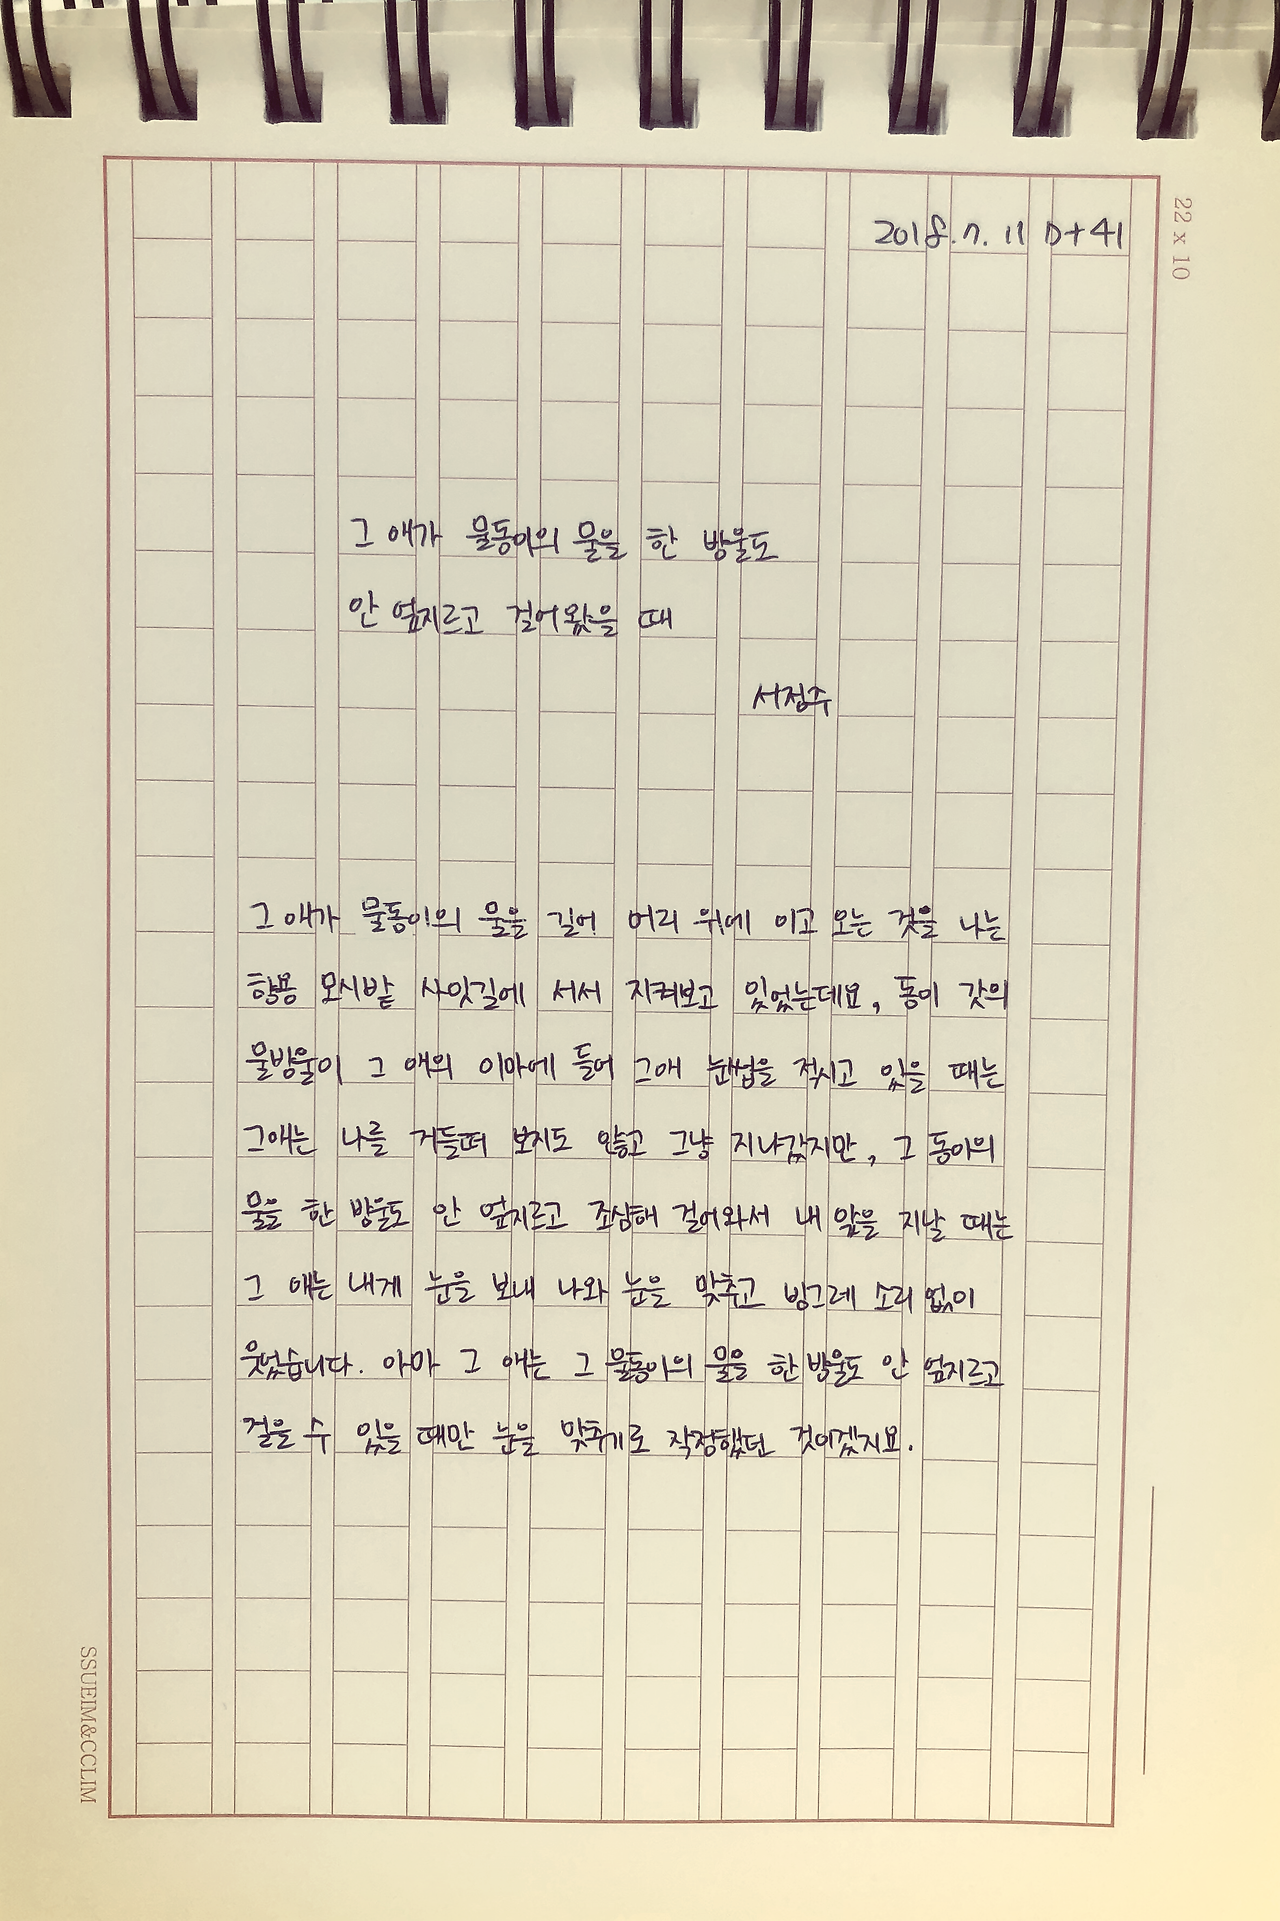 2018.7.11 D+41
22 x 10
그 애가 물동이의 물을 한 방울도
안 엎지르고 걸어왔을 때
서정주
그 애가 물동이의 물을 길어 머리 위에 이고 오는 것을 나는
항용 모시밭 사잇길에 서서 지켜보고 있었는데요, 동이 갓의
물방울이 그 애의 이마에 들어 그애 눈썹을 적시고 있을 때는
그애는 나를 거들떠 보지도 않고 그냥 지나갔지만, 그 동이의
물을 한 방울도 안 엎지르고 조심해 걸어와서 내 앞을 지날 때는
그 애는 내게 눈을 보내 나와 눈을 맞추고 빙그레 소리 없이
웃었습니다. 아마 그 애는 그 물동이의 물을 한 방울도 안 엎지르고
걸을 수 있을 때만 눈을 맞추기로 작정했던 것이겠지요.
SSUEIM&CCLIM